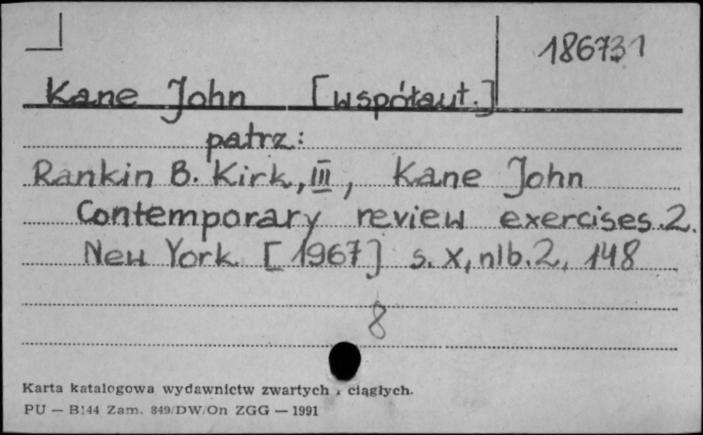 186731
Kane John [współaut.]
patrz:
Rankin B. Kirk, III, Kane John
Contemporary review exercises. 2.
New York [1967] s. X, nlb. 2, 148
8
Karta katalogowa wydawnictw zwartych i ciągłych.
PU — B144 Zam. 849/DW/On ZGG — 1991